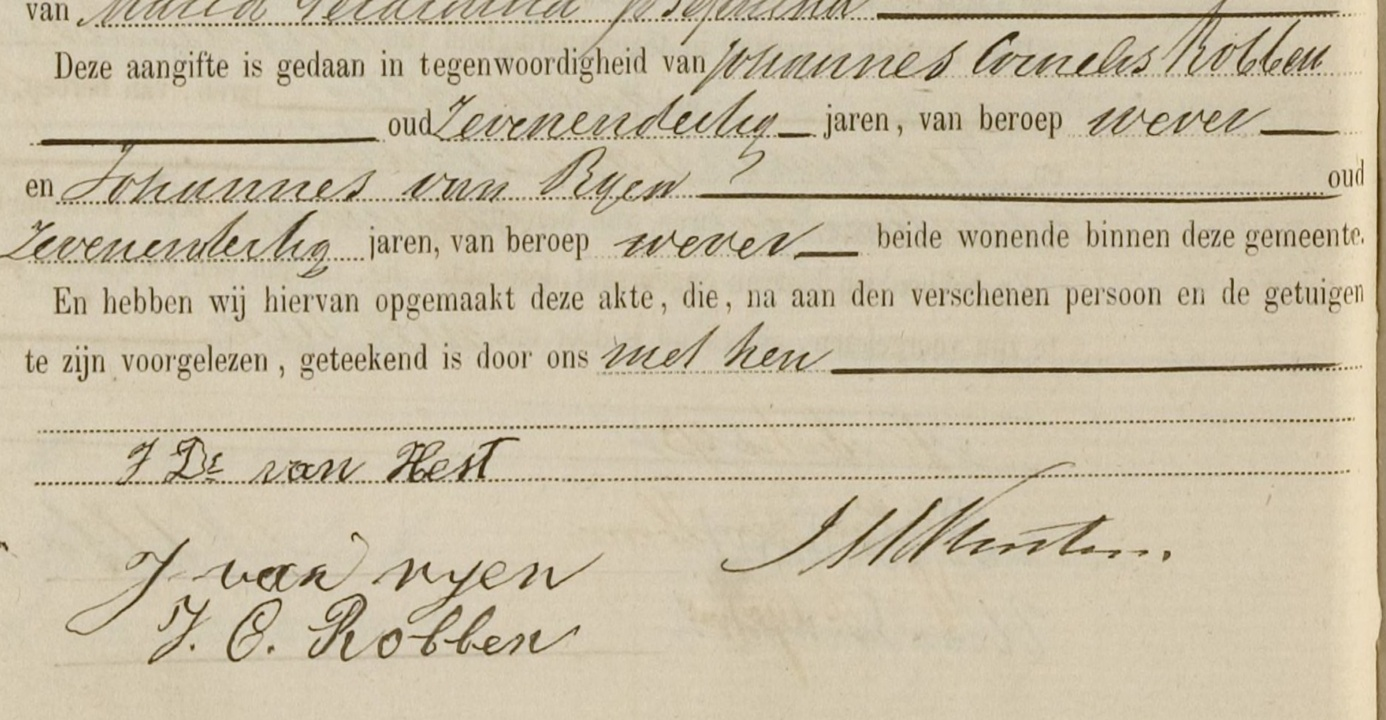 van Maria Gerardina Josephina
Deze aangifte is gedaan in tegenwoordigheid van Johannes Cornelis Robben
oud Zevenendertig jaren, van beroep wever
en Johannes van Ryen oud
Zevenendertig jaren, van beroep wever beide wonende binnen deze gemeente.
En hebben wij hiervan opgemaakt deze akte, die, na aan den verschenen persoon en de getuigen
te zijn voorgelezen, geteekend is door ons met hen
J Ds van Hest
J van ryen
J. C. Robben